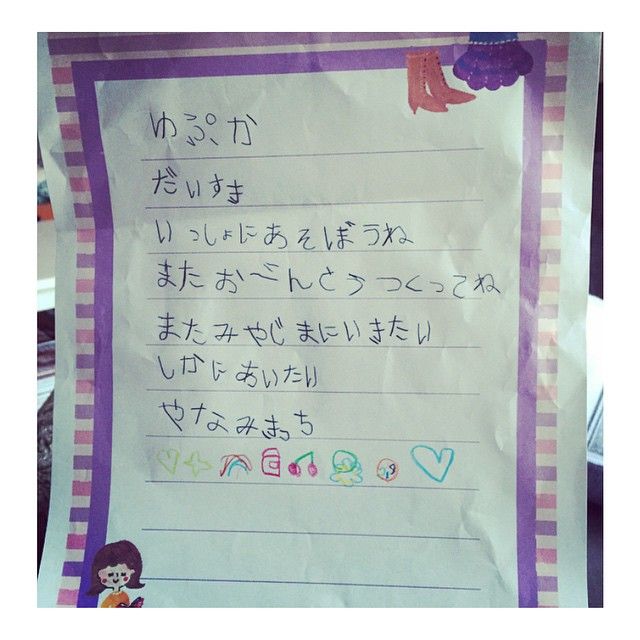 ゆぷか
だいすき
いっしょにあそぼうね
またおべんとうつくってね
またみやじまにいきたい
しかにあいたい
やなみまっち